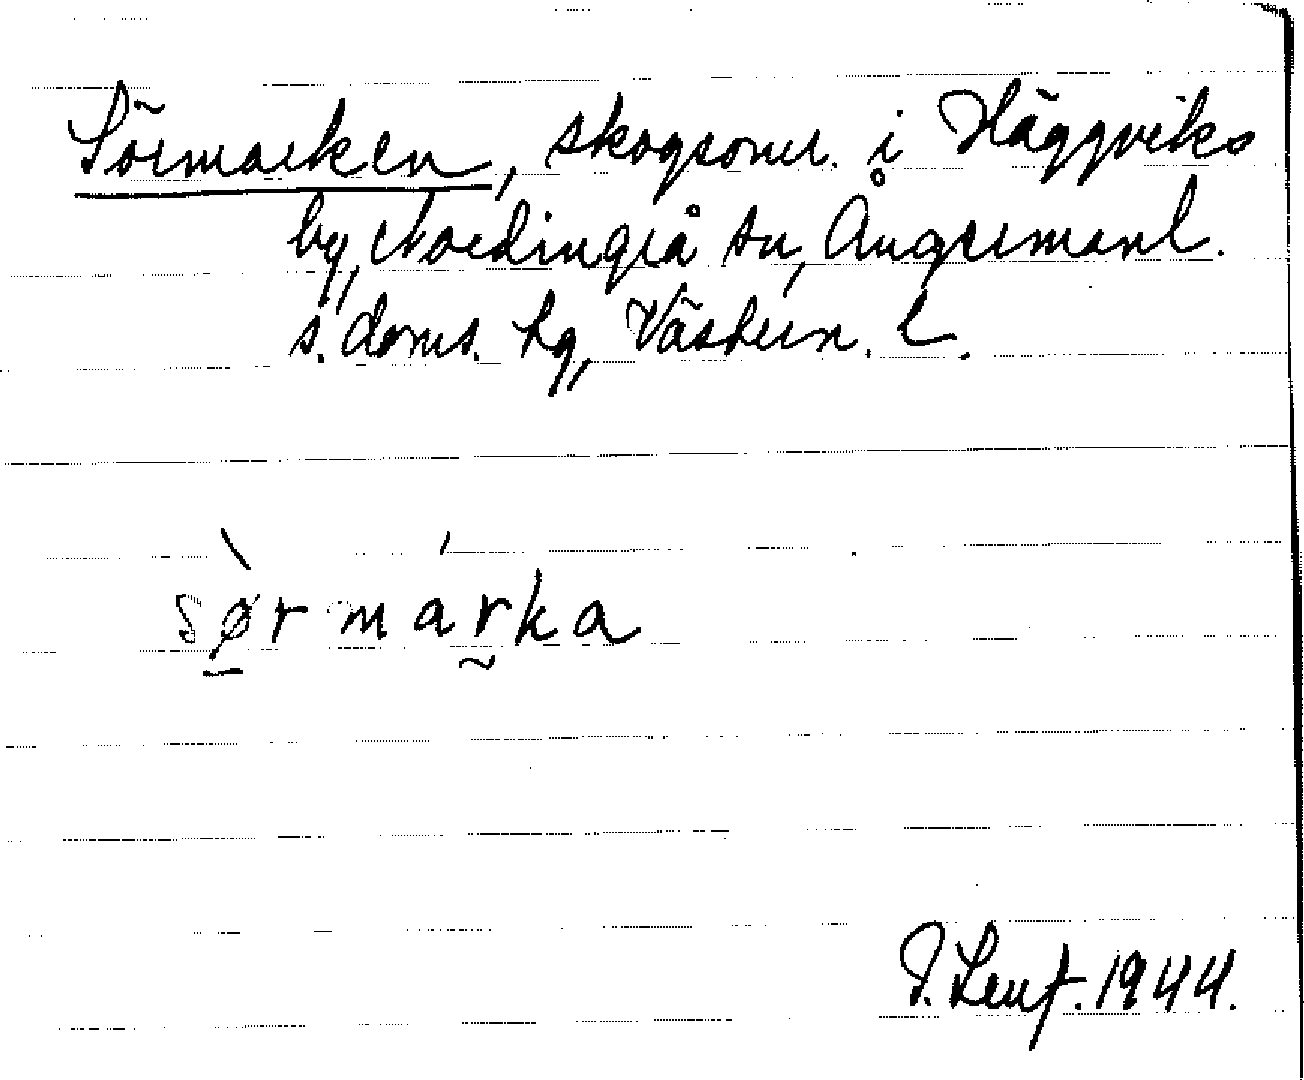 Sörmarken, skogsområ. i Häggviks
by, Nordingrå sn, Ångermanl.
s. doms. hg, Västern. L.
sørmarka
P. Leuf. 1944.